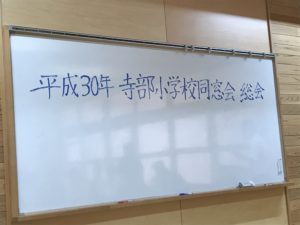 平成30年 寺部小学校同窓会 総会